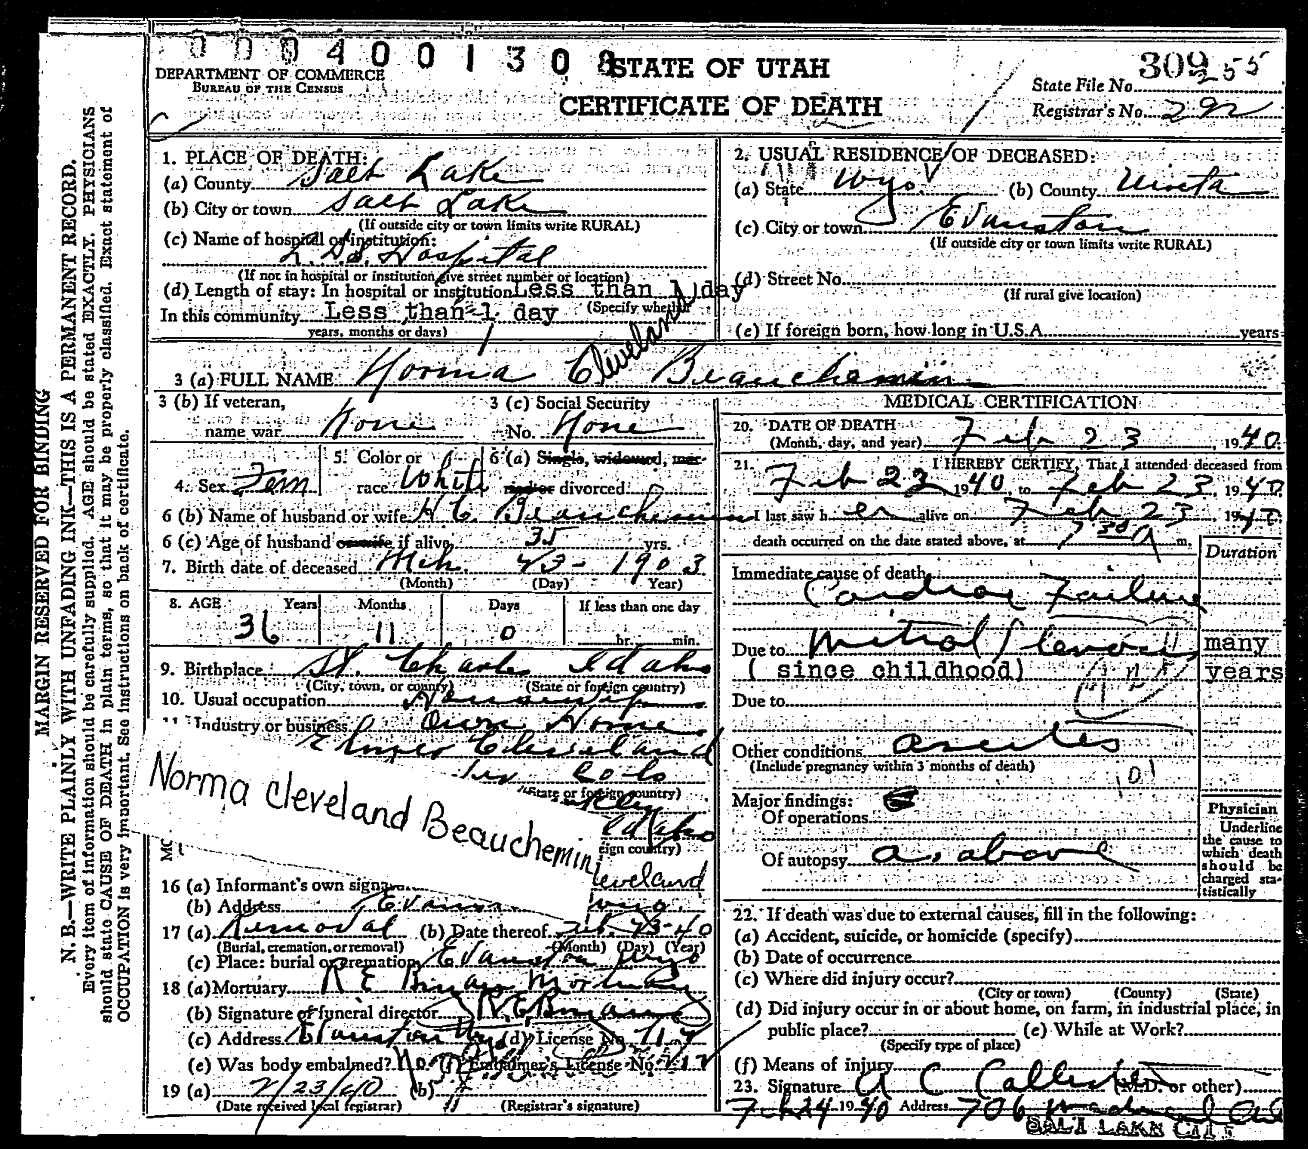 0004001308
STATE OF UTAH
CERTIFICATE OF DEATH
DEPARTMENT OF COMMERCE
BUREAU OF THE CENSUS
State File No. 309 255
Registrar's No. 292
MARGIN RESERVED FOR BINDING
N. B.—WRITE PLAINLY WITH UNFADING INK—THIS IS A PERMANENT RECORD.
Every item of information should be carefully supplied. AGE should be stated EXACTLY. PHYSICIANS
should state CAUSE OF DEATH in plain terms, so that it may be properly classified. Exact statement of
OCCUPATION is very important. See instructions on back of certificate.
1. PLACE OF DEATH:
(a) County Salt Lake
(b) City or town Salt Lake
(If outside city or town limits write RURAL)
(c) Name of hospital or institution:
L.D.S. Hospital
(If not in hospital or institution give street number or location)
(d) Length of stay: In hospital or institution Less than 1 day
(Specify whether
In this community Less than 1 day
years, months or days)
2. USUAL RESIDENCE OF DECEASED:
(a) State Wyo (b) County Uinta
(c) City or town Evanston
(If outside city or town limits write RURAL)
(d) Street No.
(If rural give location)
(e) If foreign born, how long in U.S.A. years
3 (a) FULL NAME Norma Cleveland Beauchemin
3 (b) If veteran,
name war None
3 (c) Social Security
No. None
4. Sex Fem
5. Color or
race White
6 (a) Single, widowed, mar-
ried or divorced
6 (b) Name of husband or wife H C. Beauchemin
6 (c) Age of husband or wife if alive 35 yrs.
7. Birth date of deceased Mch. 23 - 1903
(Month) (Day) (Year)
8. AGE Years Months Days If less than one day
36 11 0 hr. min.
9. Birthplace St. Charles Idaho
(City, town, or county) (State or foreign country)
10. Usual occupation Housewife
11. Industry or business Own Home
Cleveland
Colo
(State or foreign country)
Idaho
eign country)
Norma Cleveland Beauchemin
16 (a) Informant's own signa
leveland
(b) Address Evans
17 (a) Removal (b) Date thereof Feb. 23-40
(Burial, cremation, or removal) (Month) (Day) (Year)
(c) Place: burial or cremation Evanston Wyo
18 (a) Mortuary R E Mortuary
(b) Signature of funeral director R. E.
(c) Address Evanston Wyo (d) License No.
(e) Was body embalmed? No (f) Embalmer's License No.
19 (a) 2/23/40 (b)
(Date received local registrar) (Registrar's signature)
MEDICAL CERTIFICATION
20. DATE OF DEATH
(Month, day, and year) Feb 23, 1940
21. I HEREBY CERTIFY, That I attended deceased from
Feb 23 1940 to Feb 23, 1940
I last saw her alive on Feb 23 1940
death occurred on the date stated above, at 7 30 A m.
Duration
Immediate cause of death
Cardiac Failure
Due to Mitral Stenosis many
( since childhood) years
Due to
Other conditions ascites
(Include pregnancy within 3 months of death)
Major findings:
Of operations
Of autopsy as above
Physician
Underline
the cause to
which death
should be
charged sta-
tistically
22. If death was due to external causes, fill in the following:
(a) Accident, suicide, or homicide (specify)
(b) Date of occurrence
(c) Where did injury occur?
(City or town) (County) (State)
(d) Did injury occur in or about home, on farm, in industrial place, in
public place? (e) While at Work?
(Specify type of place)
(f) Means of injury
23. Signature A C Callister (M.D. or other)
Feb 24 1940 Address 706
SALT LAKE CITY